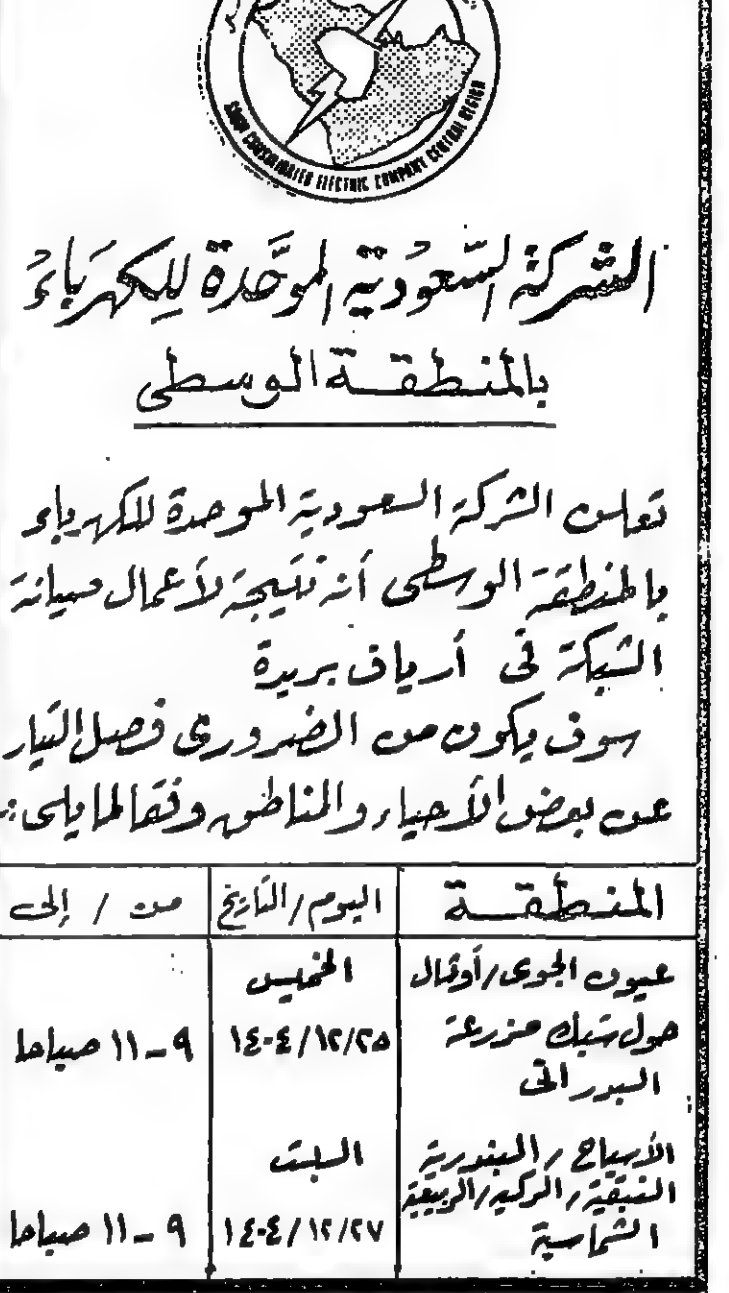 SAUDI CONSOLIDATED ELECTRIC COMPANY CENTRAL REGION
الشركة السعودية الموحدة للكهرباء
بالمنطقة الوسطى
تعلن الشركة السعودية الموحدة للكهرباء
بالمنطقة الوسطى أنه نتيجة لأعمال صيانة
الشبكة فى أرياف بريدة
سوف يكون من الضرورى فصل التيار
عن بعض الأحياء والمناطق وفقا لما يلى :-
المنطقة اليوم/التاريخ من / إلى
عيون الجوى/أوثال الخميس
حول شبك مزرعة ١٤٠٤/١٢/٢٥ ٩ - ١١ صباحا
البدرانى
الأسياح / البندرية السبت
النبقية/الركية/الربيعية
الشماسية ١٤٠٤/١٢/٢٧ ٩ - ١١ صباحا